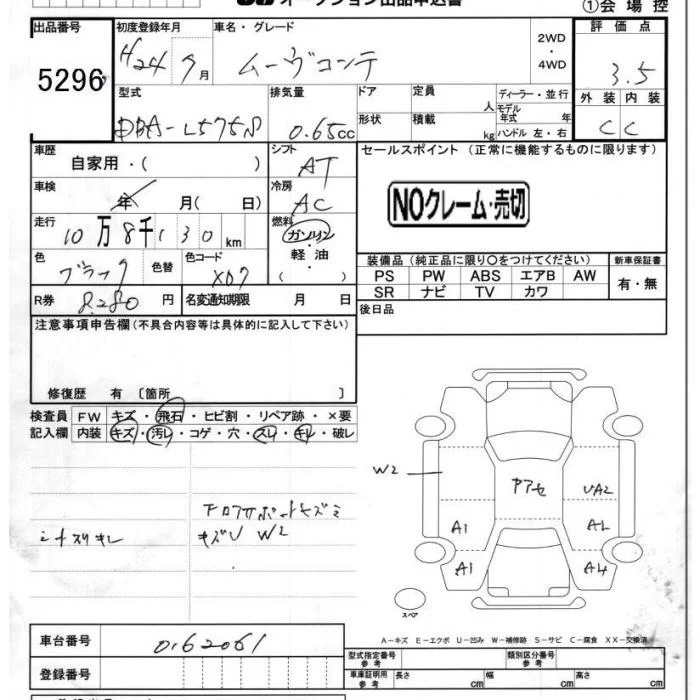 オークション出品申込書
①会場控
出品番号 初度登録年月 車名・グレード 2WD・4WD 評価点
5296 H24 7月 ムーヴコンテ 3.5
型式 排気量 ドア 定員 人 ディーラー・並行 外装 内装
DBA-L575S 0.65cc 形状 積載 kg モデル年式 年 ハンドル 左・右 C C
車歴 自家用・( ) シフト AT セールスポイント (正常に機能するものに限ります)
車検 年 月( 日) 冷房 AC
NOクレーム・売切
走行 10万8千130km 燃料 ガソリン・軽油・( )
色 ブラック 色替 色コード X07
装備品(純正品に限り○をつけてください) 新車保証書
PS PW ABS エアB AW 有・無
SR ナビ TV カワ
R券 8,280円 名変通知期限 月 日 後日品
注意事項申告欄(不具合内容等は具体的に記入して下さい)
修復歴 有 〔箇所 〕
検査員 FW キズ・飛石・ヒビ割・リペア跡・×要
記入欄 内装 キズ・汚レ・コゲ・穴・スレ・キレ・破レ
W2
UA2
A1
A1
A4
キズU W2
スペア
A-キズ E-エクボ U-凹み W-補修跡 S-サビ C-腐食 XX-交換済
車台番号 0162061
登録番号
型式指定番号 参考 類別区分番号 参考
車庫証明用 参考 長さ cm 幅 cm 高さ cm